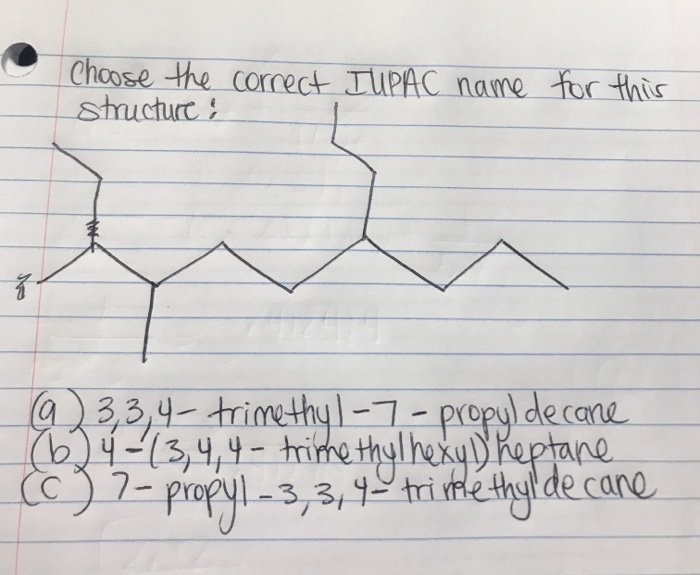 Choose the correct IUPAC name for this
structure:
(a) 3,3,4- trimethyl-7-propyldecane
(b) 4-(3,4,4-trimethylhexyl)heptane
(c) 7-propyl-3,3,4-trimethyldecane